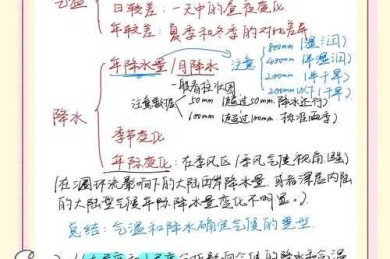 气温
日较差：一天中的昼夜变化
年较差：夏季和冬季的对比差异
年降水量/月降水
注意
800mm（湿润）
400mm（半湿润）
200mm（半干旱）
200mm以下（干旱）
一般看柱状图
降水
注意数据
50mm（超过50mm，降水还行）
100mm（超过100mm，标准雨季）
季节变化
年际变化：在季风区（季风气候视角强）
（在环流影响下的大陆西岸降水量，或者深居内陆
的大陆型气候年际降水量变化不明显。）
总结：气温和降水确定气候的类型.